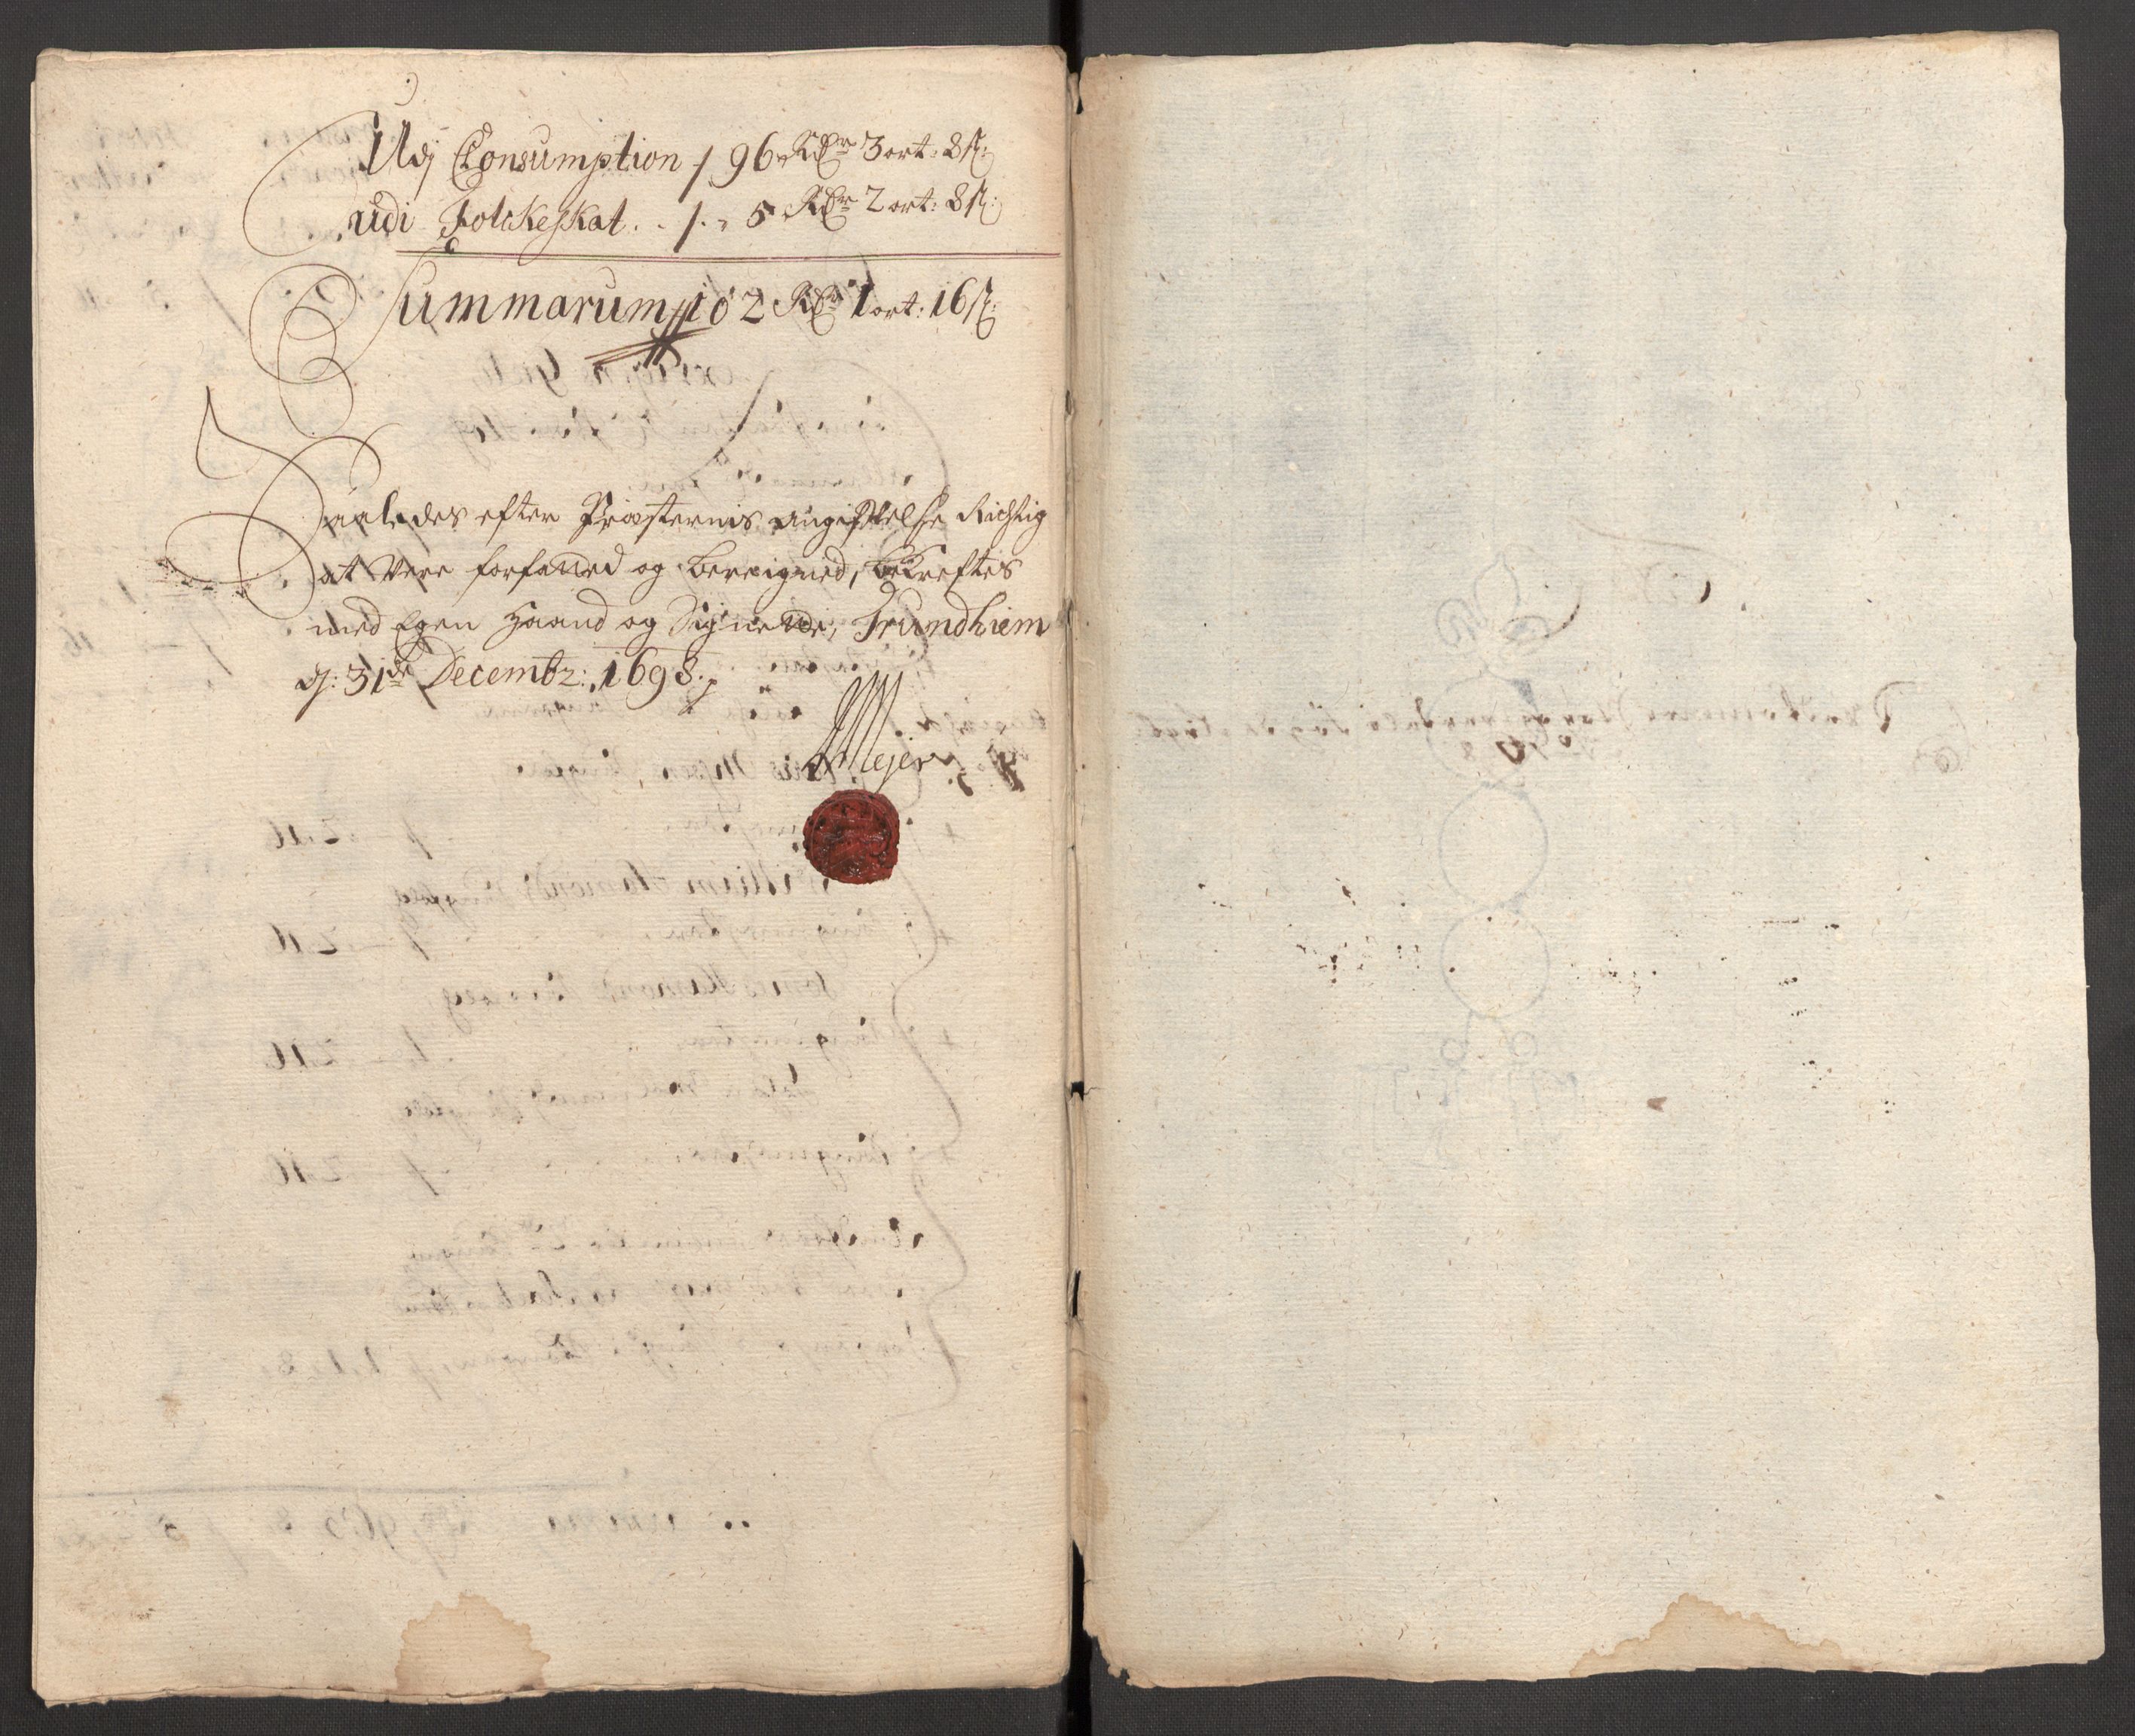 Udj Consumption / 96 Rdr 3 ort: 8 s:
udi Folckeskat . . / . „ 5 Rdr 2 ort: 8 s:
Summarum // 102 Rdr 1 ort: 16 s:
Saaledes efter Præsternis angifvelse Richtig
at Vere forfatted og beregned, bekreftes
med Egen Haand og Signette, Trundhiem
dj: 31de Decembr: 1698.
Mejer